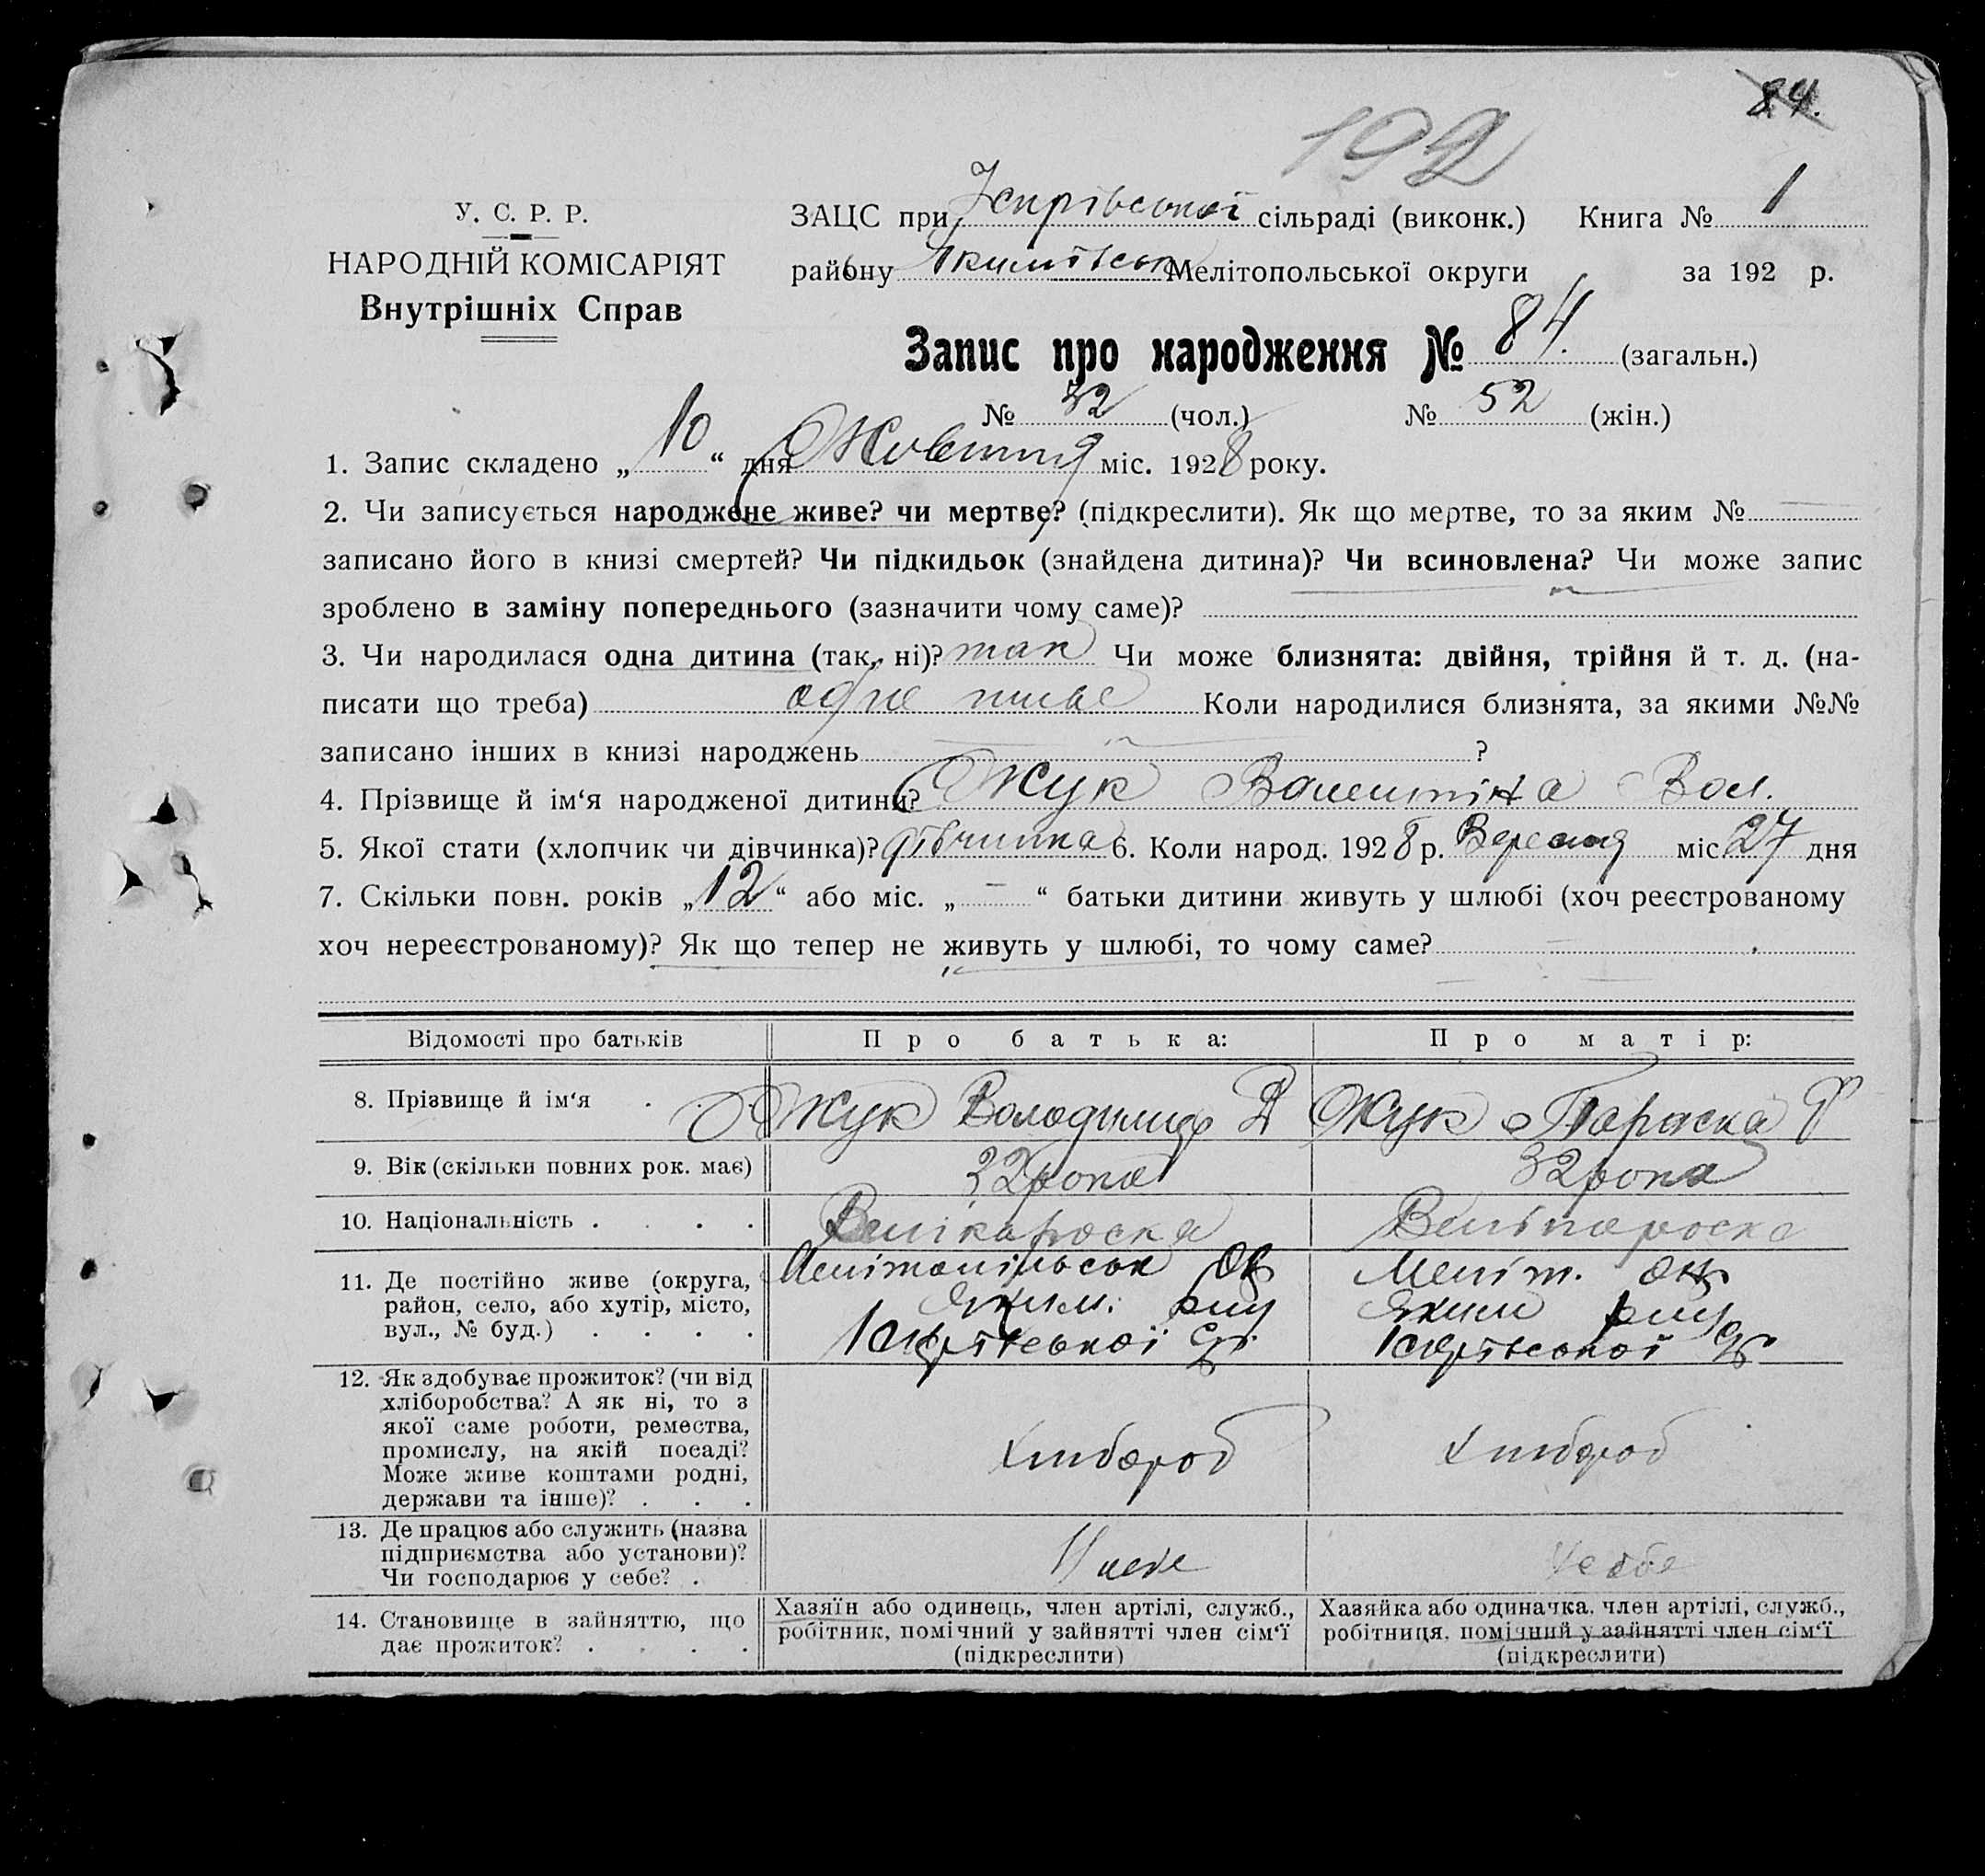 84.
192
У. С. Р. Р.
НАРОДНІЙ КОМІСАРІЯТ
Внутрішніх Справ
ЗАЦС при сільраді (виконк.) Книга № 1
району Мелітопольської округи за 192 р.
Запис про народження № 84. (загальн.)
№ 32 (чол.) № 52 (жін.)
1. Запис складено „10“ дня Жовтня міс. 1928 року.
2. Чи записується народжене живе? чи мертве? (підкреслити). Як що мертве, то за яким № —
записано його в книзі смертей? Чи підкидьок (знайдена дитина)? Чи всиновлена? Чи може запис
зроблено в заміну попереднього (зазначити чому саме)?
3. Чи народилася одна дитина (так, ні)? так Чи може близнята: двійня, трійня й т. д. (на-
писати що треба) одне Коли народилися близнята, за якими №№
записано інших в книзі народжень ?
4. Прізвище й ім‘я народженої дитини? Жук Валентіна Вол.
5. Якої стати (хлопчик чи дівчинка)? дівчинка 6. Коли народ. 1928 р. Вересня міс. 27 дня
7. Скільки повн. років „12“ або міс. „—“ батьки дитини живуть у шлюбі (хоч реєстрованому
хоч нереєстрованому)? Як що тепер не живуть у шлюбі, то чому саме? —
Відомості про батьків Про батька: Про матір:
8. Прізвище й ім‘я . . Жук Володимир Д Жук Параска Ф
9. Вік (скільки повних рок. має) 32 рока 32 рока
10. Національність . . . . Велікароска Велікароска
11. Де постійно живе (округа, Мелітопільськ Окр Меліт. окр
район, село, або хутір, місто, Яким. рну Яким рну
вул., № буд.) . . . .
12. Як здобуває прожиток? (чи від
хліборобства? А як ні, то з
якої саме роботи, ремества, Хлибороб Хлибороб
промислу, на якій посаді?
Може живе коштами родні,
держави та інше)? . . .
13. Де працює або служить (назва
підприємства або установи)? У себе У себе
Чи господарює у себе? .
14. Становище в зайняттю, що Хазяїн або одинець, член артілі, служб., Хазяйка або одиначка, член артілі, служб.,
дає прожиток? . . . . робітник, помічний у зайнятті член сім‘ї робітниця, помічний у зайнятті член сім‘ї
(підкреслити) (підкреслити)